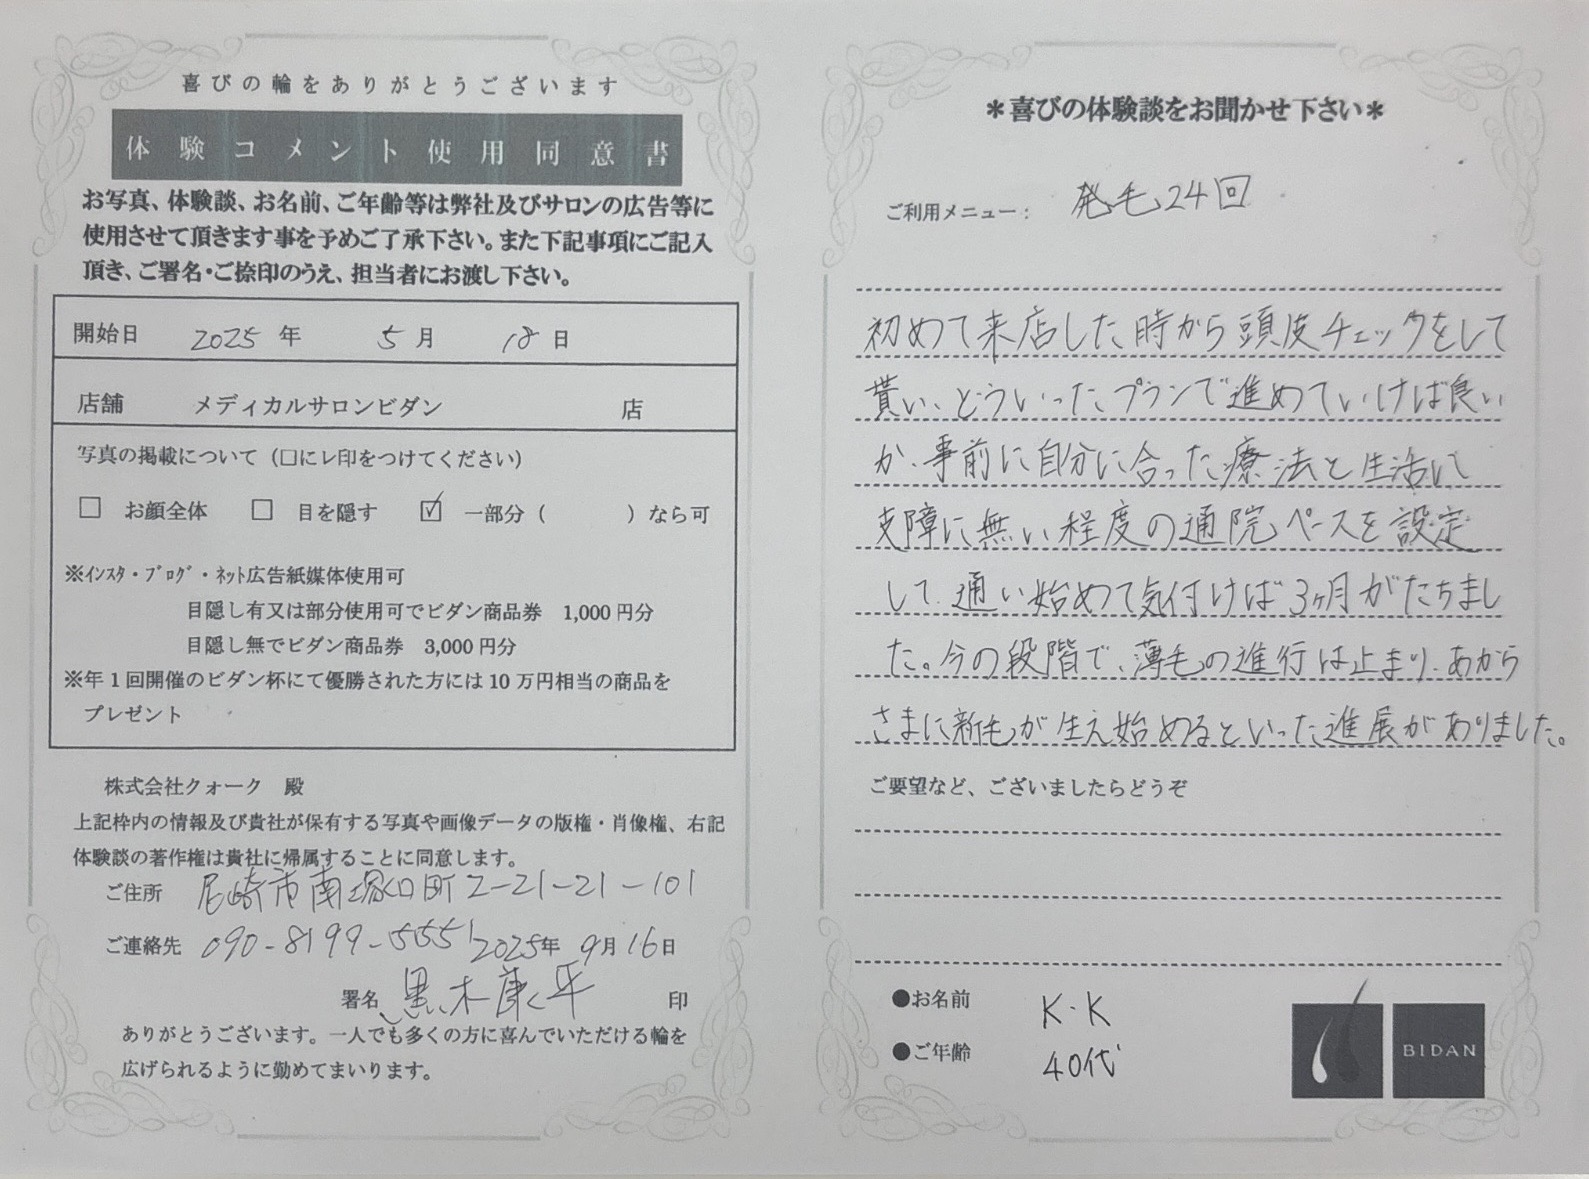 喜びの輪をありがとうございます
体験コメント使用同意書
お写真、体験談、お名前、ご年齢等は弊社及びサロンの広告等に
使用させて頂きます事を予めご了承下さい。また下記事項にご記入
頂き、ご署名・ご捺印のうえ、担当者にお渡し下さい。
開始日 2025年 5月 18日
店舗 メディカルサロンビダン 店
写真の掲載について（□にレ印をつけてください）
□ お顔全体 □ 目を隠す ☑ 一部分（ ）なら可
※インスタ・ブログ・ネット広告紙媒体使用可
目隠し有又は部分使用可でビダン商品券 1,000円分
目隠し無でビダン商品券 3,000円分
※年1回開催のビダン杯にて優勝された方には10万円相当の商品を
プレゼント
株式会社クォーク 殿
上記枠内の情報及び貴社が保有する写真や画像データの版権・肖像権、右記
体験談の著作権は貴社に帰属することに同意します。
ご住所 尼崎市南塚口町2-21-21-101
ご連絡先 090-8199-5551 2025年 9月 16日
署名 黒木康平 印
ありがとうございます。一人でも多くの方に喜んでいただける輪を
広げられるように勤めてまいります。
＊喜びの体験談をお聞かせ下さい＊
ご利用メニュー： 発毛24回
初めて来店した時から頭皮チェックをして
貰い、どういったプランで進めていけば良い
か、事前に自分に合った療法と生活に
支障に無い程度の通院ペースを設定
して通い始めて気付けば3ヶ月がたちまし
た。今の段階で、薄毛の進行は止まり、あから
さまに新毛が生え始めるといった進展がありました。
ご要望など、ございましたらどうぞ
●お名前 K・K
●ご年齢 40代
BIDAN